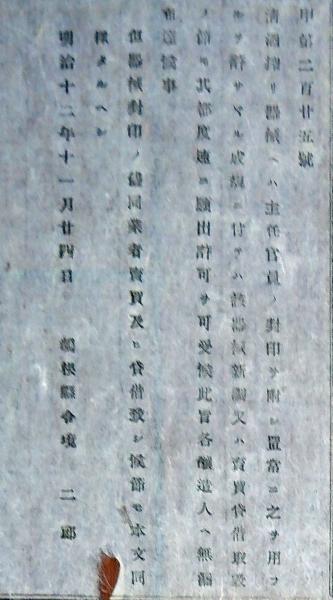 甲第二百廿五號
清酒搾リ器械ヘハ主任官員ノ封印ヲ附シ置常ニ之ヲ用フ
ルヲ許サヾル成規ニ付テハ該器械新調又ハ賣買貸借取毀
ノ節モ其都度速ニ願出許可ヲ可受候此旨各釀造人ヘ無漏
布達候事
但器械封印ノ儘同業者賣買及ヒ貸借致シ候節モ本文同
様タルヘシ
明治十二年十一月廿四日 島根縣令境 二郎